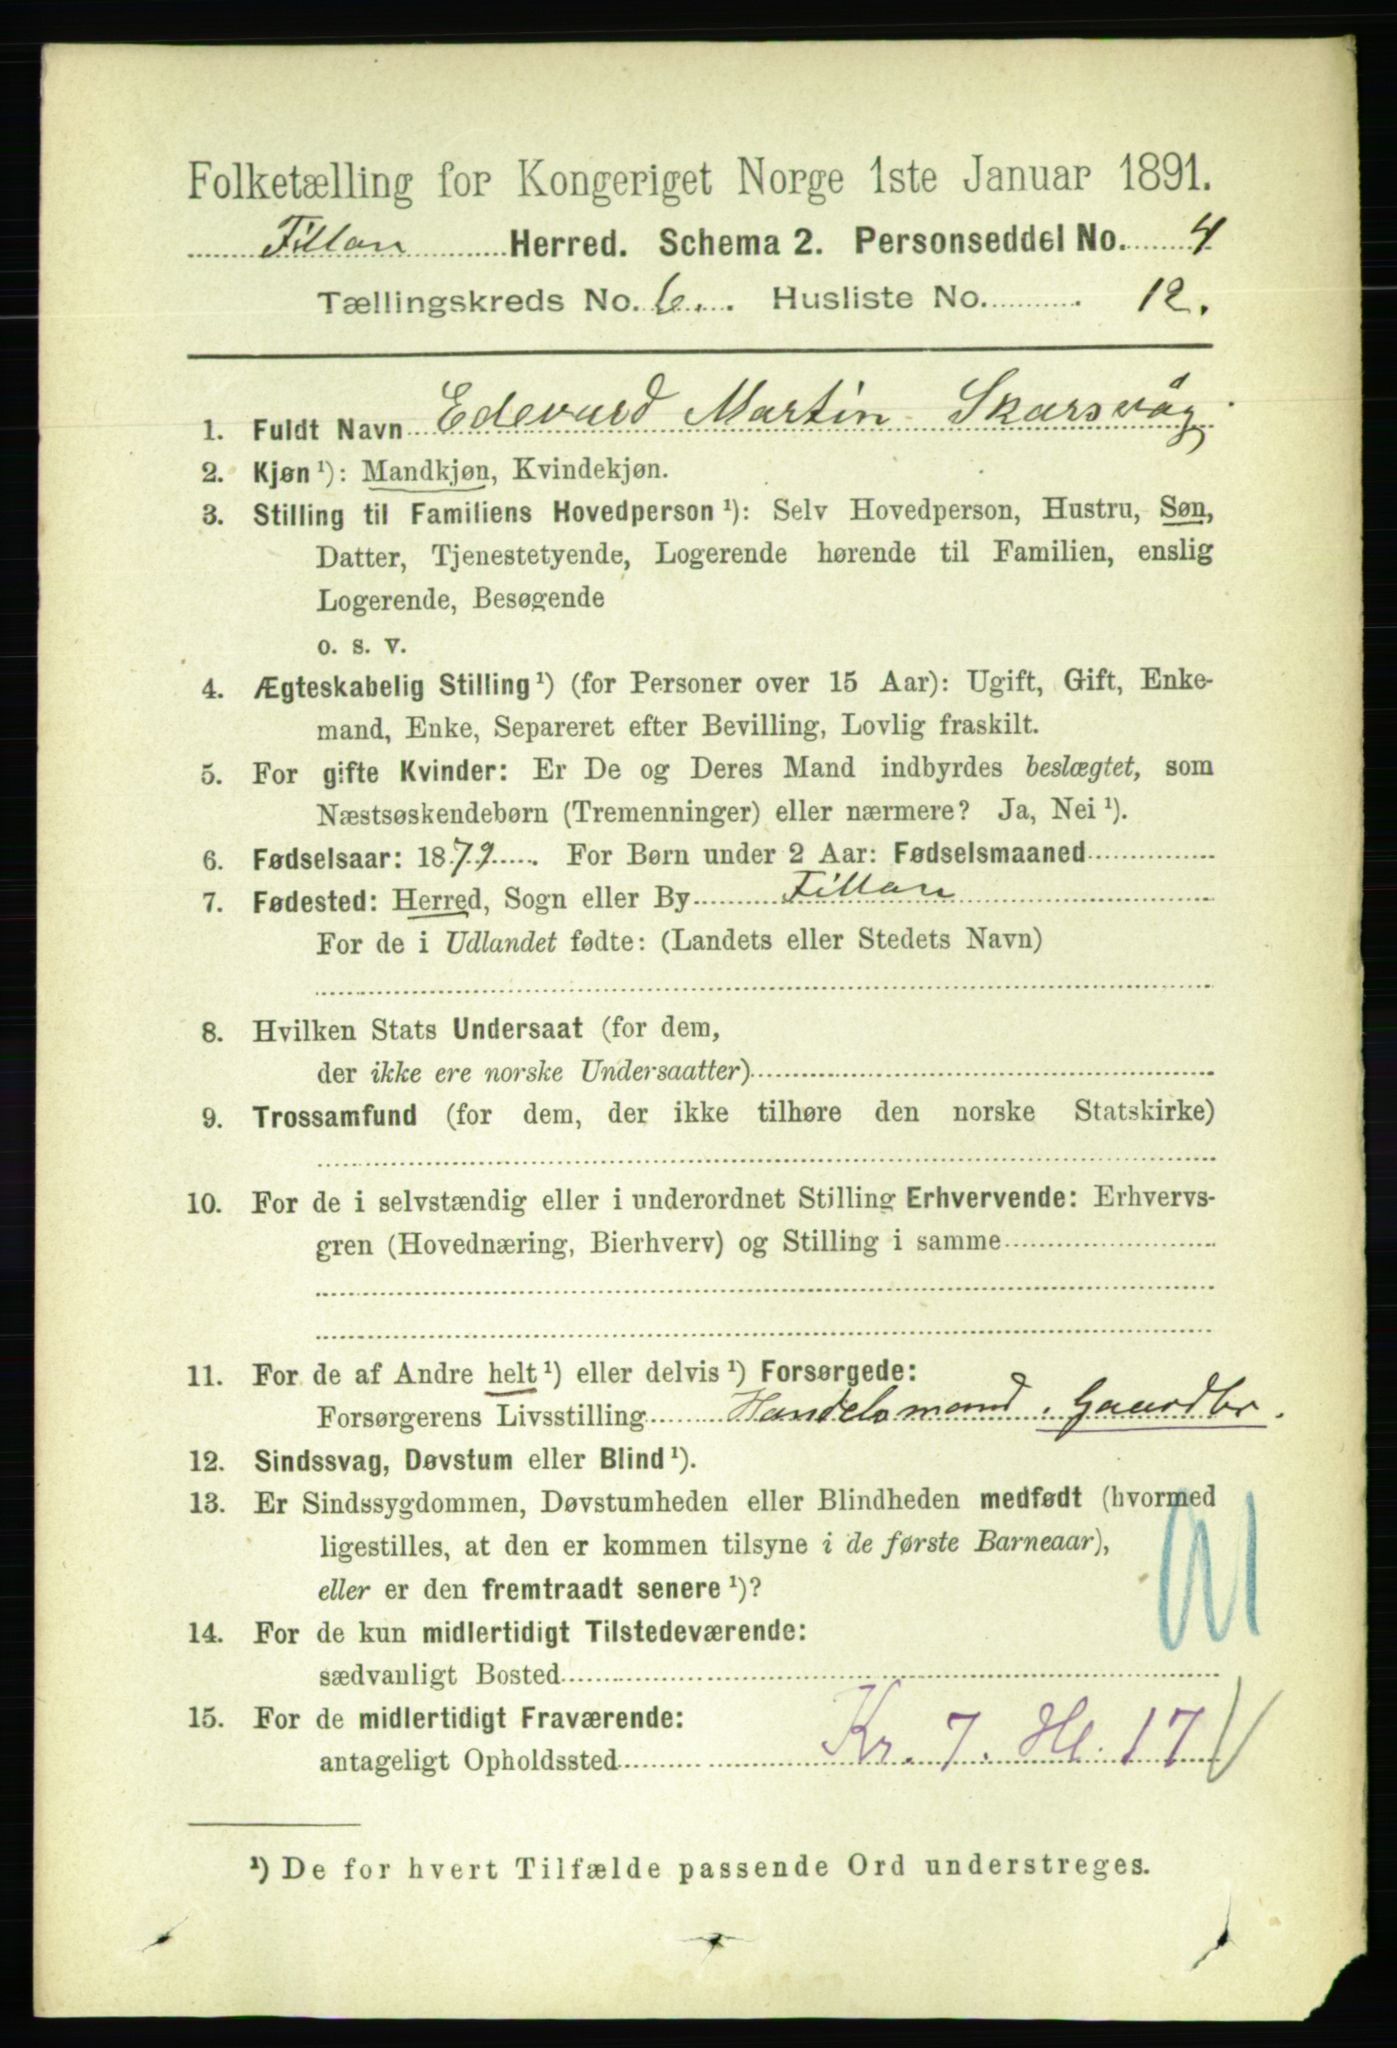 Folketælling for Kongeriget Norge 1ste Januar 1891.
Fillan Herred. Schema 2. Personseddel No. 4
Tællingskreds No. 6. Husliste No. 12.
1. Fuldt Navn Edevard Martin Skarsvåg
2. Kjøn ¹): Mandkjøn, Kvindekjøn.
3. Stilling til Familiens Hovedperson ¹): Selv Hovedperson, Hustru, Søn,
Datter, Tjenestetyende, Logerende hørende til Familien, enslig
Logerende, Besøgende
o. s. v.
4. Ægteskabelig Stilling ¹) (for Personer over 15 Aar): Ugift, Gift, Enke-
mand, Enke, Separeret efter Bevilling, Lovlig fraskilt.
5. For gifte Kvinder: Er De og Deres Mand indbyrdes beslægtet, som
Næstsøskendebørn (Tremenninger) eller nærmere? Ja, Nei ¹).
6. Fødselsaar: 1879. For Børn under 2 Aar: Fødselsmaaned
7. Fødested: Herred, Sogn eller By Fillan
For de i Udlandet fødte: (Landets eller Stedets Navn)
8. Hvilken Stats Undersaat (for dem,
der ikke ere norske Undersaatter)
9. Trossamfund (for dem, der ikke tilhøre den norske Statskirke)
10. For de i selvstændig eller i underordnet Stilling Erhvervende: Erhvervs-
gren (Hovednæring, Bierhverv) og Stilling i samme
11. For de af Andre helt ¹) eller delvis ¹) Forsørgede:
Forsørgerens Livsstilling Handelsmand, Gaardbr.
12. Sindssvag, Døvstum eller Blind ¹).
13. Er Sindssygdommen, Døvstumheden eller Blindheden medfødt (hvormed
ligestilles, at den er kommen tilsyne i de første Barneaar),
eller er den fremtraadt senere ¹)?
14. For de kun midlertidigt Tilstedeværende:
sædvanligt Bosted
15. For de midlertidigt Fraværende:
antageligt Opholdssted Kr. 7. Hl. 17
¹) De for hvert Tilfælde passende Ord understreges.